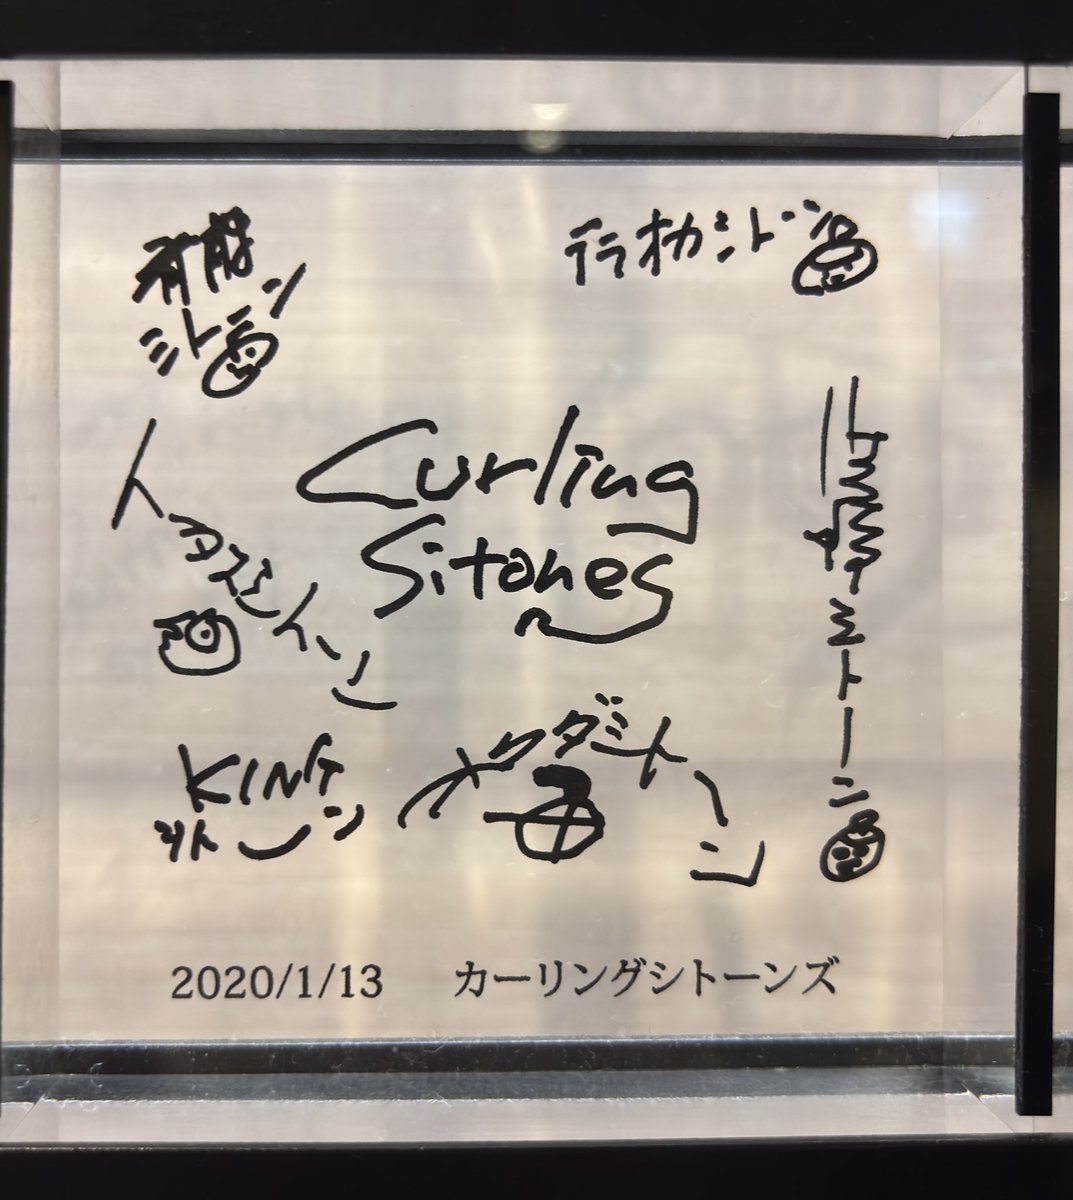 斉藤
シトーン
テラオカシトーン
Curling
Sitones
トータスシトーン
シトーン
KING
シトーン
オクダシトーン
2020/1/13 カーリングシトーンズ